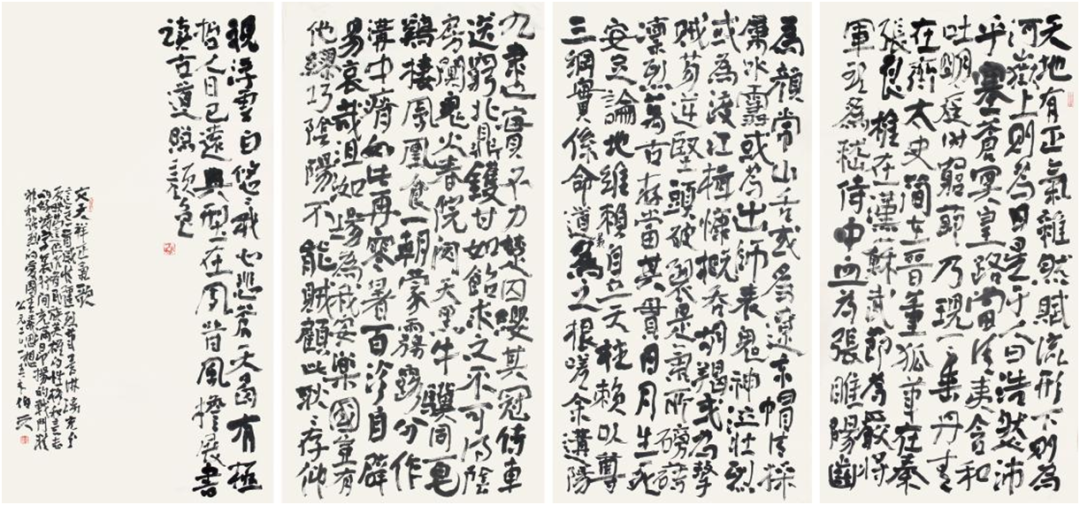 天地有正氣雜然賦流形下則為
河嶽上則為日星于人曰浩然沛
乎塞蒼冥皇路當清夷含和
吐明庭時窮節乃現一垂丹青
在齊太史簡在晉董狐筆在秦
張良椎在漢蘇武節為嚴將
軍頭為嵇侍中血為張睢陽齒
為顏常山舌或為遼東帽清操
厲冰雪或為出師表鬼神泣壯烈
或為渡江楫慷慨吞胡羯或為擊
賊笏逆豎頭破裂是氣所磅礴
凜烈萬古存當其貫日月生死
安足論地維賴自立天柱賴以尊
三綱實係命道義為之根嗟余遘陽
九隶也實不力楚囚纓其冠傳車
送窮北鼎鑊甘如飴求之不可得陰
房闃鬼火春院閟天黑牛驥同皂
鷄棲鳳凰食一朝蒙霧露分作
溝中瘠如此再寒暑百沴自辟
易哀哉沮洳場為我安樂國豈有
他繆巧陰陽不能賊顧此耿々存仰
視浮雲白悠々我心悲蒼天曷有極
哲人日已遠典型在夙昔風檐展書
讀古道照顏色
文天祥正氣歌